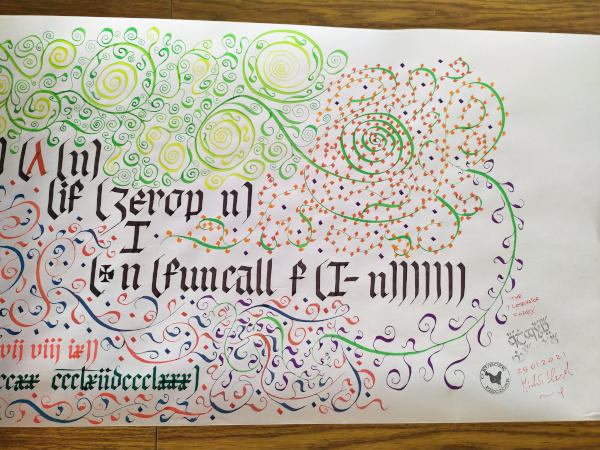 ) (λ (n)
(if (zerop n)
I
(✠ n (funcall f (I- n)))))))
vij viij ix))
ccxx c̅c̅c̅l̅xiidccclxxx)
THE
CODEX
25.01.2021